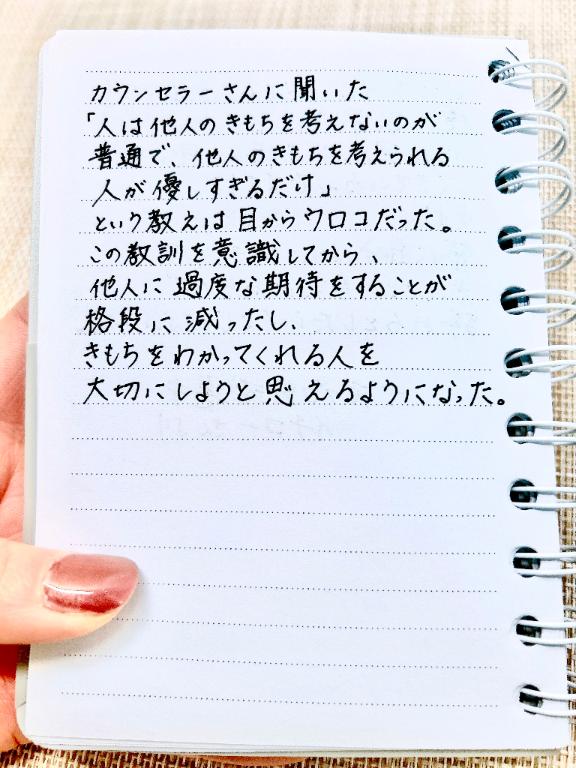 カウンセラーさんに聞いた
「人は他人のきもちを考えないのが
普通で、他人のきもちを考えられる
人が優しすぎるだけ」
という教えは目からウロコだった。
この教訓を意識してから、
他人に過度な期待をすることが
格段に減ったし、
きもちをわかってくれる人を
大切にしようと思えるようになった。